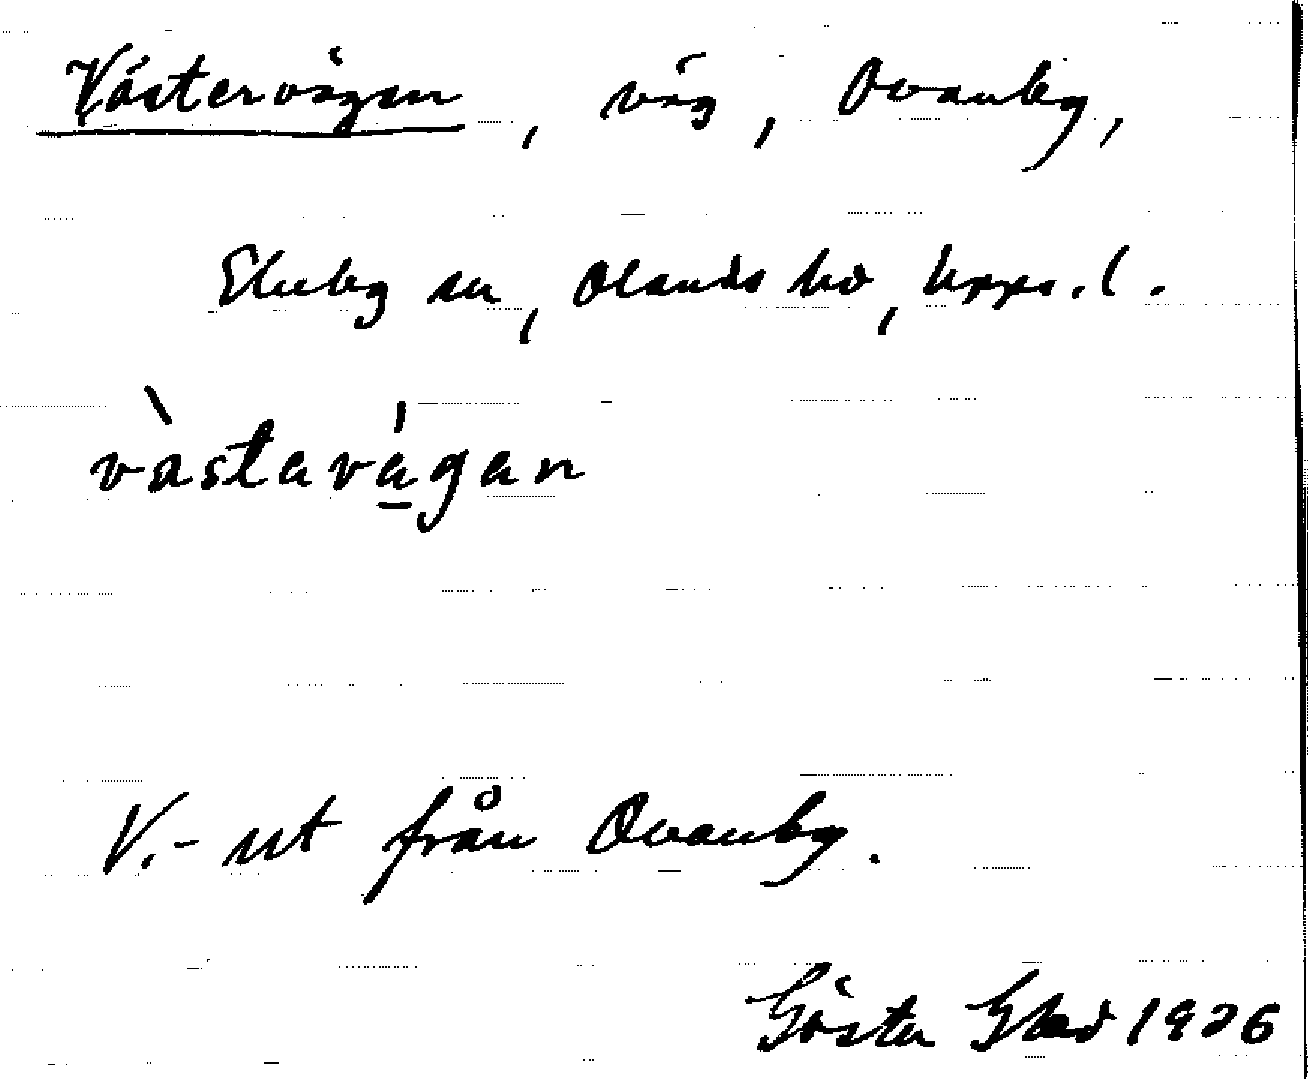 Västervägen, väg, Ovanby,
Ekeby sn, Olands hd, Upps. l.
västavägan
V.- ut från Ovanby.
Gösta Glad 1926